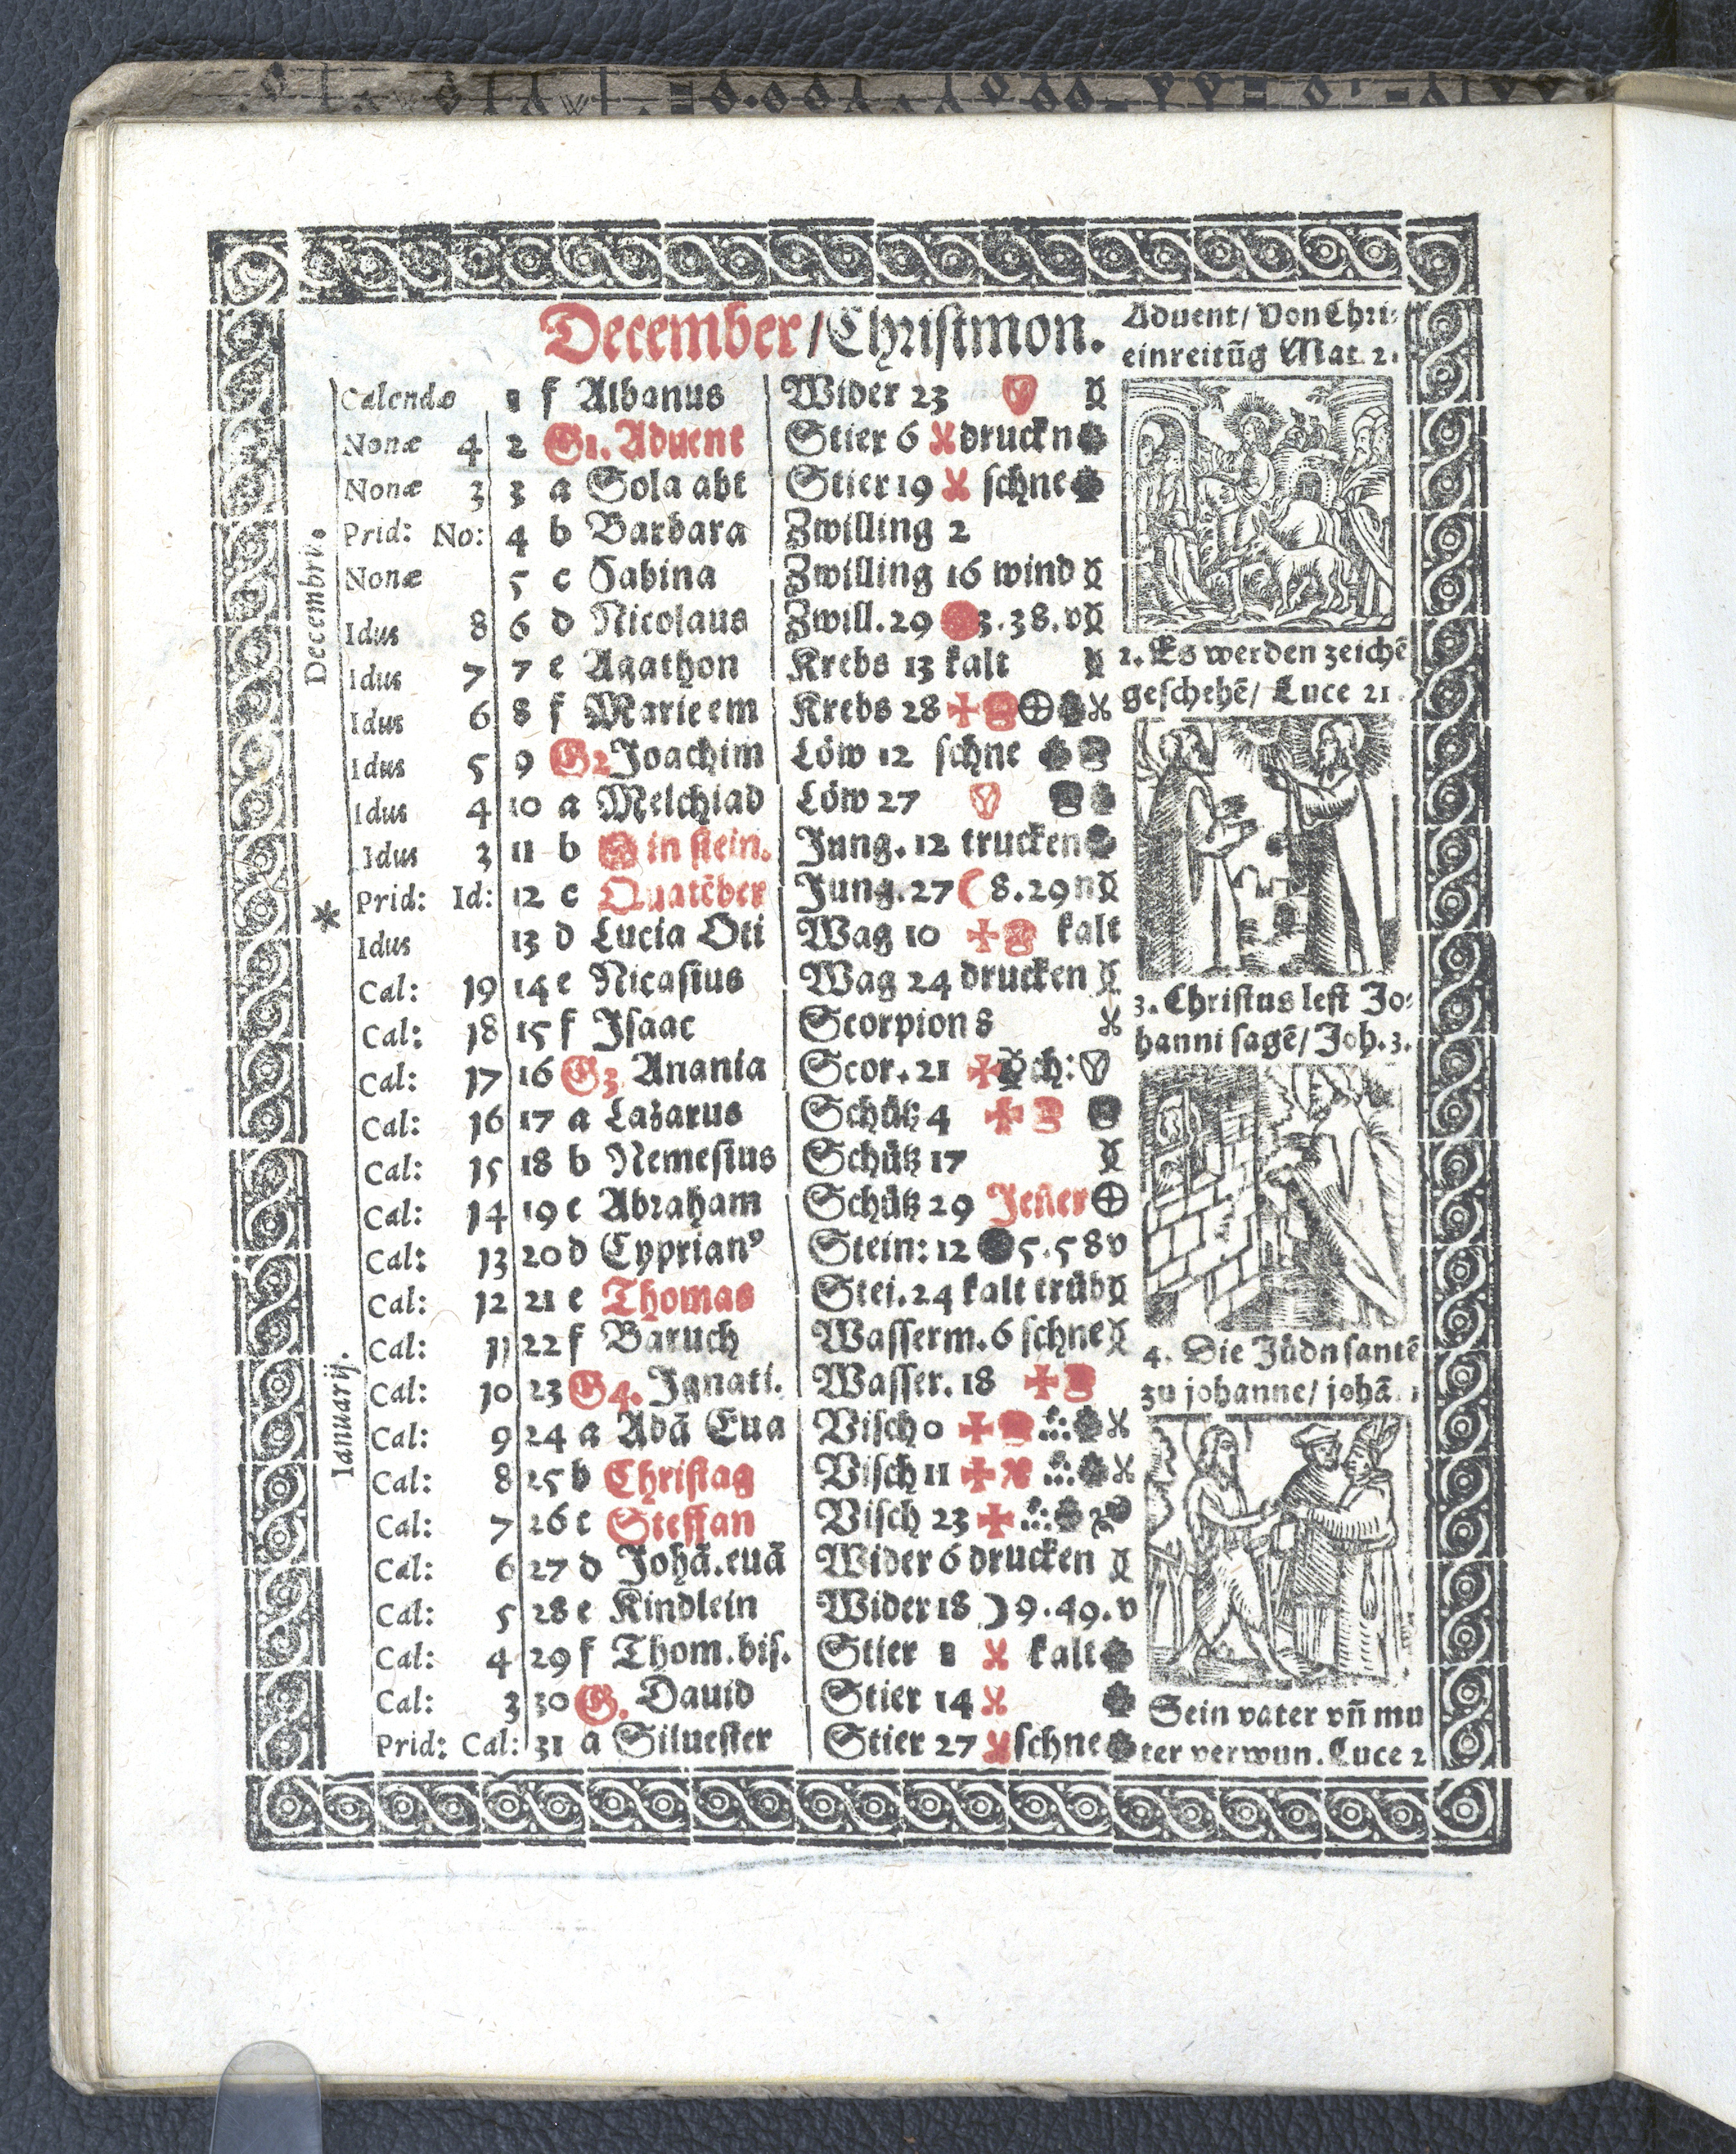 December / Christmon.
Calendæ 1 f Albanus Wider 23
Nonæ 4 2 G1. Aduent Stier 6 druckn
Nonæ 3 3 a Sola abt Stier 19 schne
Prid: No: 4 b Barbara Zwilling 2
Nonæ 5 c Sabina Zwilling 16 wind
Idus 8 6 d Nicolaus Zwill. 29 3.38.v
Idus 7 7 e Agathon Krebs 13 kalt
Idus 6 8 f Marie em Krebs 28
Idus 5 9 G2 Joachim Löw 12 schne
Idus 4 10 a Melchiad Löw 27
Idus 3 11 b in stein. Jung. 12 trucken
Prid: Id: 12 c Quatēber Jung. 27 8.29n
Idus 13 d Lucia Oti Wag 10 kalt
Cal: 19 14 e Nicasius Wag 24 drucken
Cal: 18 15 f Isaac Scorpion 8
Cal: 17 16 G3 Anania Scor. 21
Cal: 16 17 a Lazarus Schütz 4
Cal: 15 18 b Nemesius Schütz 17
Cal: 14 19 c Abraham Schütz 29 Jeñer
Cal: 13 20 d Cyprianꝰ Stein: 12 5.58v
Cal: 12 21 e Thomas Stei. 24 kalt trüb
Cal: 11 22 f Baruch Wasserm. 6 schne
Cal: 10 23 G4. Ignati. Wasser. 18
Cal: 9 24 a Adā Eua Visch 0
Cal: 8 25 b Christag Visch 11
Cal: 7 26 c Steffan Visch 23
Cal: 6 27 d Johā. euā Wider 6 drucken
Cal: 5 28 e Kindlein Wider 18 9.49.v
Cal: 4 29 f Thom. bis. Stier 1 kalt
Cal: 3 30 G. Dauid Stier 14
Prid: Cal: 31 a Siluester Stier 27 schne
Decembris.
Ianuarij.
Aduent / Von Chri⸗
einreitūg Mat. 21
2. Es werden zeichē
geschehē / Luce 21.
3. Christus lest Jo⸗
hanni sagē / Joh. 3.
4. Die Jüdn santē
zu johanne / johā.
Sein vater vñ mu
ter verwun. Luce 2